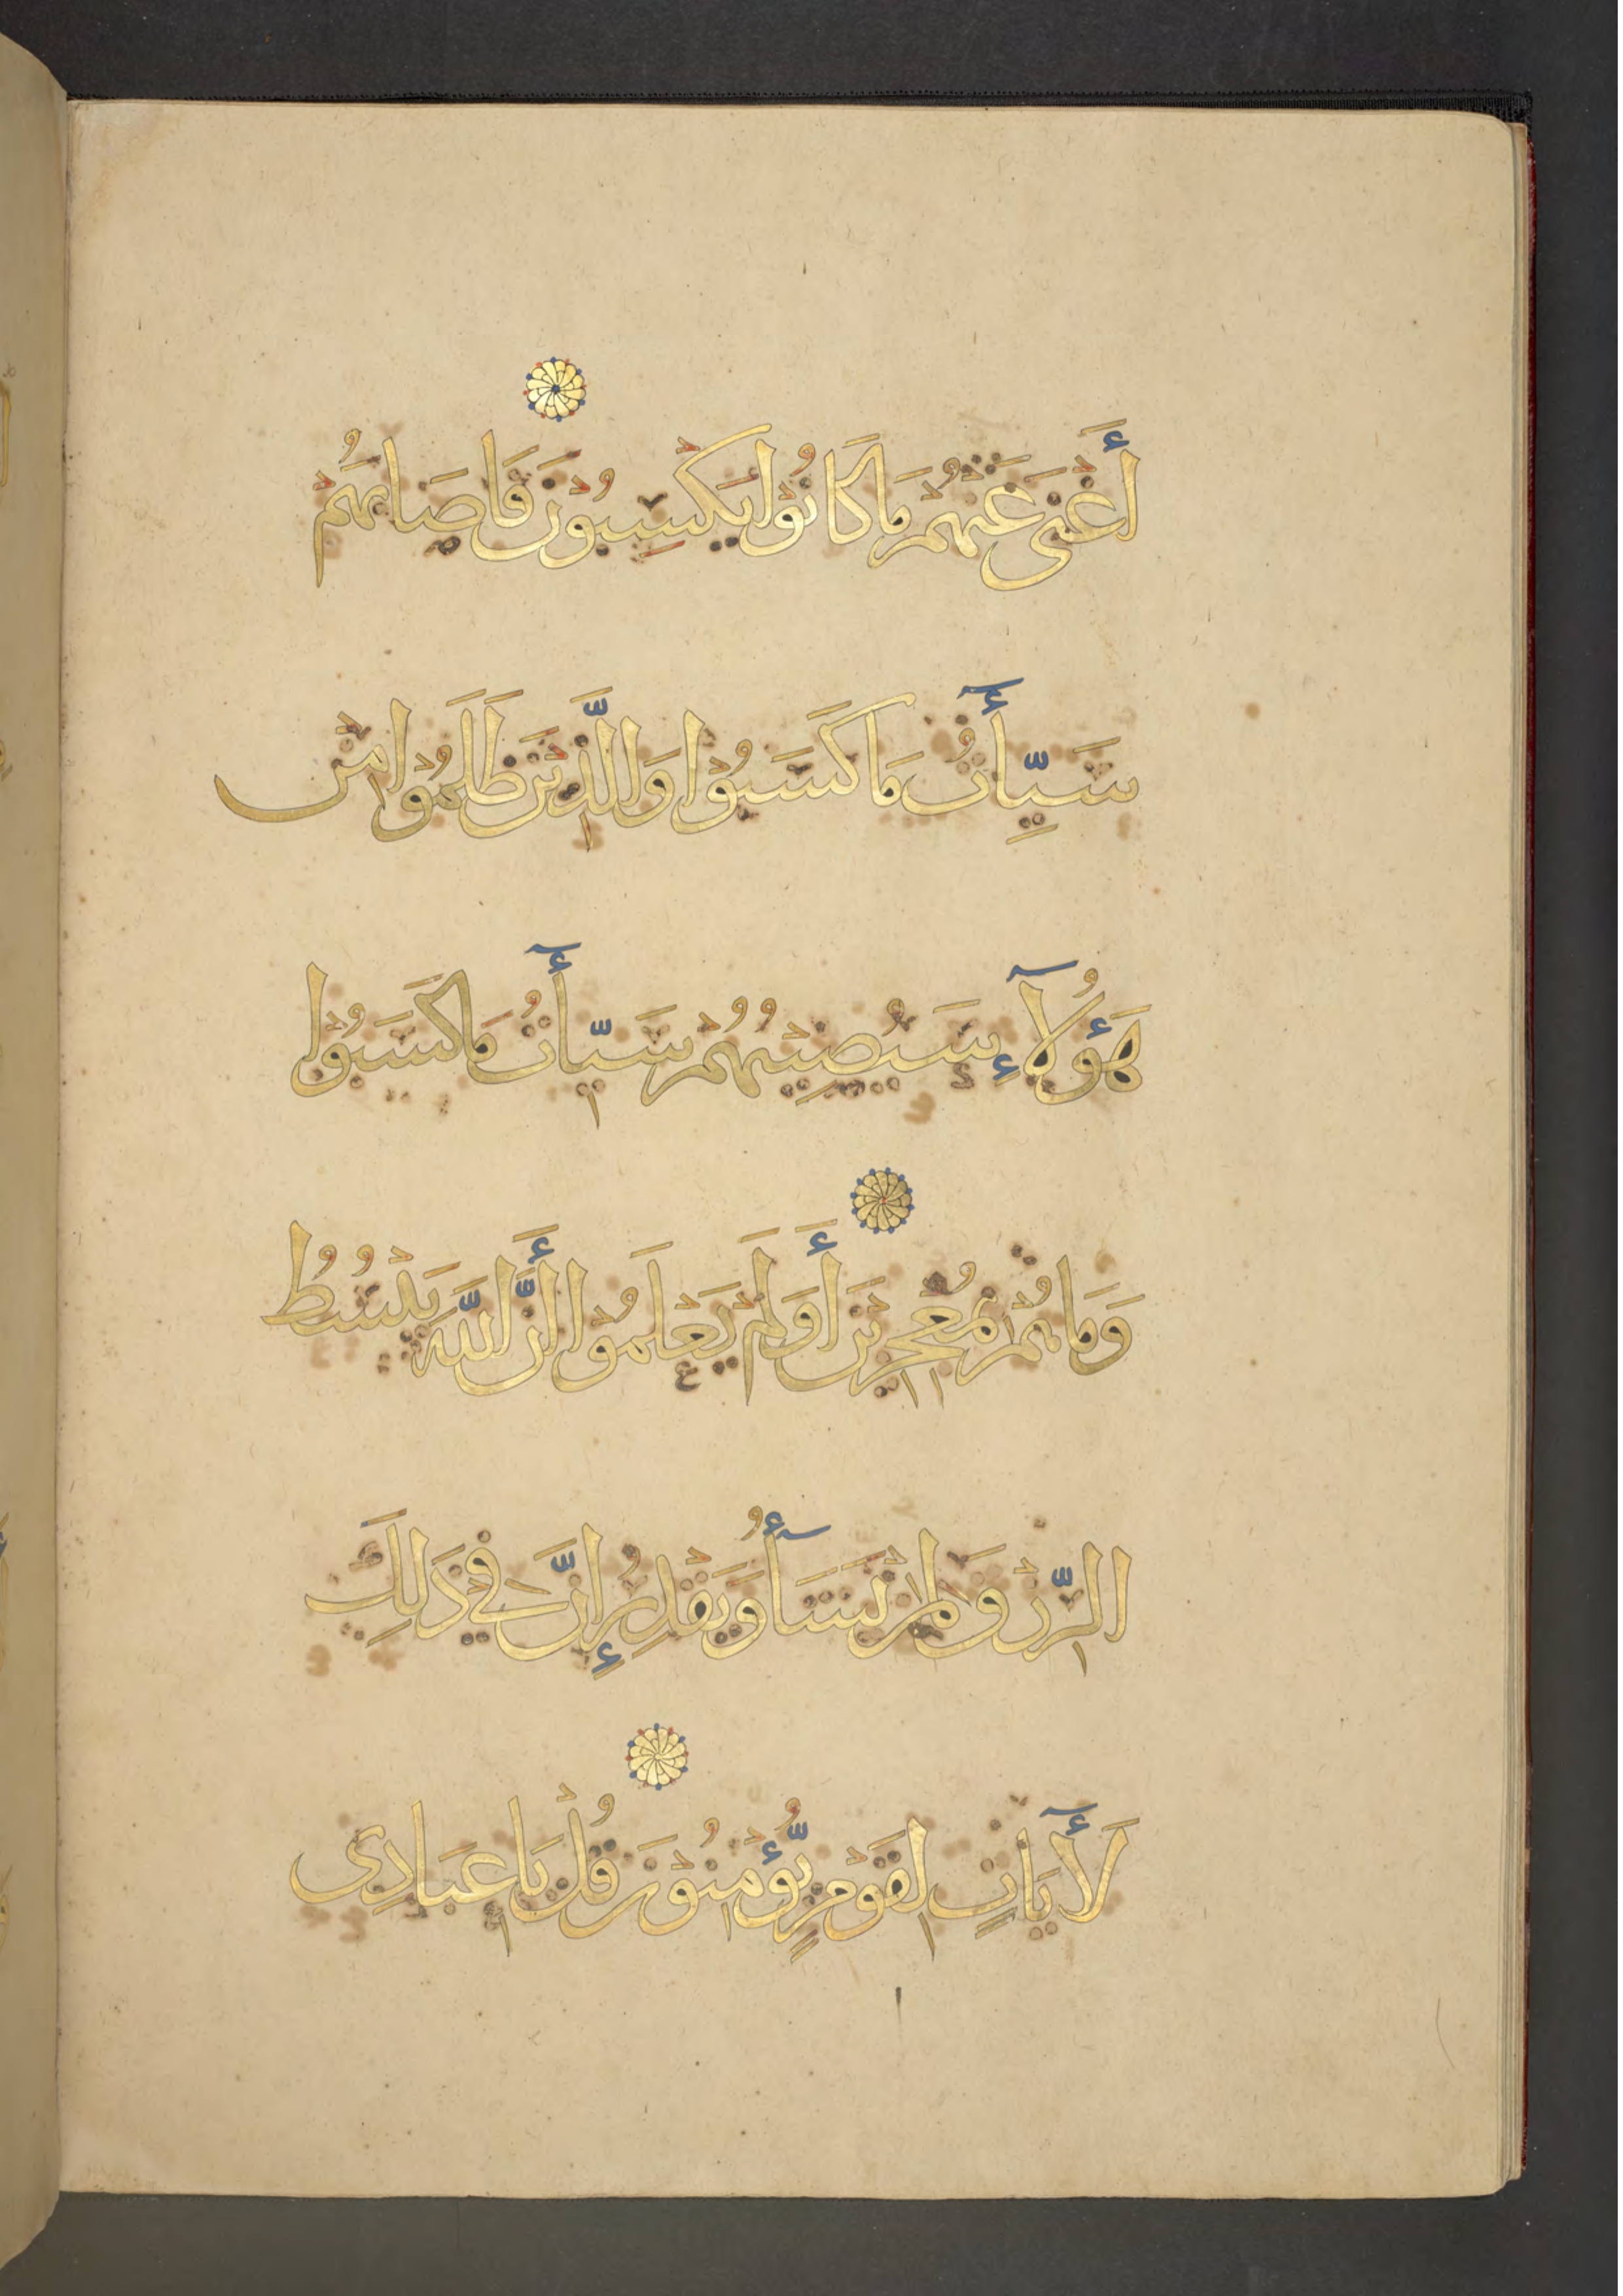 أَغْنَى عَنْهُمْ مَا كَانُوْا يَكْسِبُوْنَ فَاصَابَهُمْ
سَيِّأَتُ مَا كَسَبُوْا وَالَّذِيْنَ ظَلَمُوْا مِنْ
هَؤُلَآءِ سَيُصِيْبُهُمْ سَيِّأَتُ مَا كَسَبُوْا
وَمَا هُمْ بِمُعْجِزِيْنَ أَوَلَمْ يَعْلَمُوْا أَنَّ اللَّهَ يَبْسُطُ
الرِّزْقَ لِمَنْ يَشَأُ وَيَقْدِرُ إِنَّ فِيْ ذَلِكَ
لَأَيَاتٍ لِقَوْمٍ يُّؤْمِنُوْنَ قُلْ يَاعِبَادِي